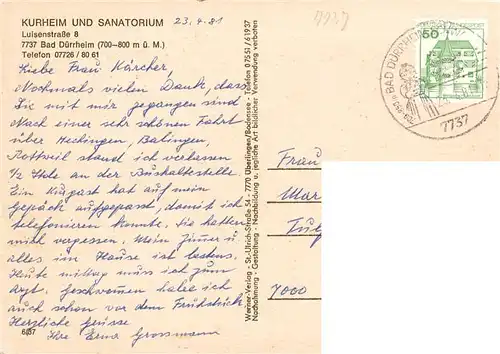 KURHEIM UND SANATORIUM 23.4.81
Luisenstraße 8
7737 Bad Dürrheim (700–800 m ü. M.)
Telefon 07726 / 80 61
Liebe Frau Kärcher,
Nochmals vielen Dank, dass
Sie mit mir gegangen sind
Nach einer sehr schönen Fahrt
über Hechingen, Balingen,
Rottweil stand ich verlassen
1/2 Std. an der Bushaltestelle.
Ein Kurgast hat auf mein
gepäck aufgepasst, damit ich
telefonieren konnte. Sie hatten
mich vergessen. Mein Zimmer u.
alles im Hause ist bestens.
Heute mittag muss ich zum
Arzt. Geschwommen habe ich
auch schon vor dem Frühstück.
Herzliche Grüsse
Ihre Erna Grossmann
6/37
Werner-Verlag - St.-Ulrich-Straße 54 - 7770 Überlingen/Bodensee - Telefon 0 75 51 / 6 19 37
Nachahmung - Gestaltung - Nachbildung u. jegliche Art bildlicher Verwendung verboten
7737
50
BAD DÜRRHEIM
7737
Frau
Mar
7000